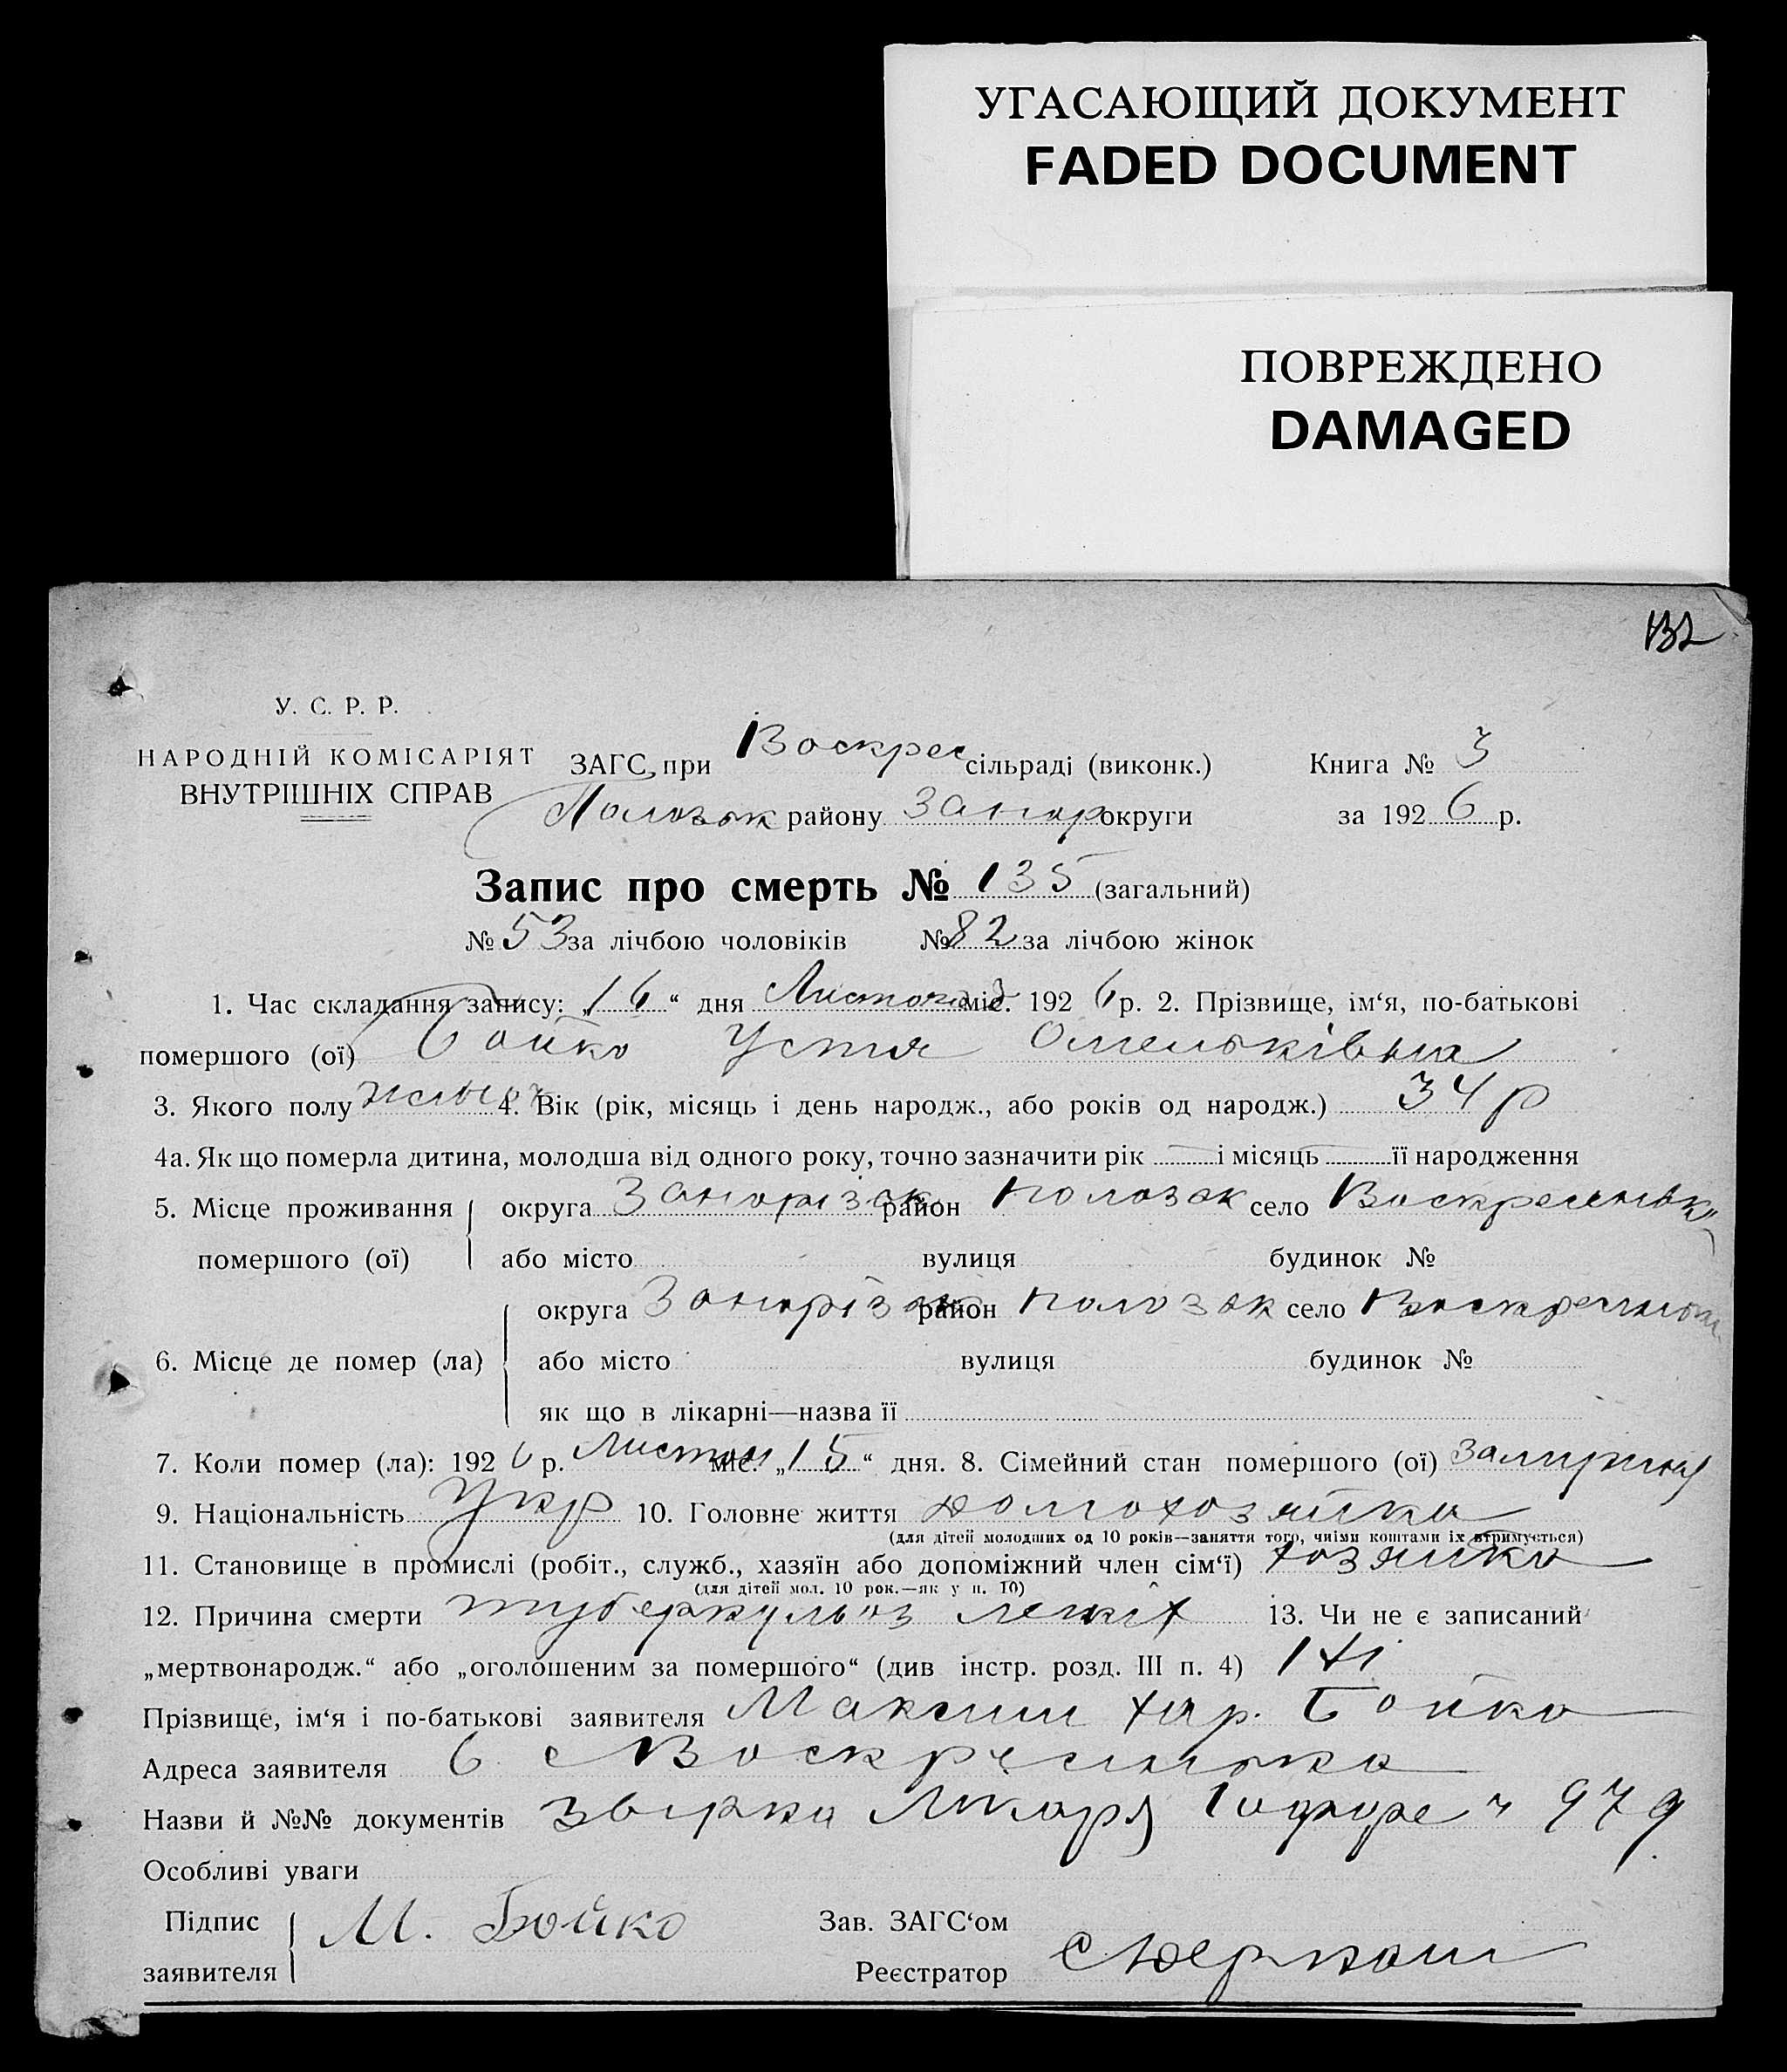 УГАСАЮЩИЙ ДОКУМЕНТ
FADED DOCUMENT
ПОВРЕЖДЕНО
DAMAGED
132
У. С. Р. Р.
НАРОДНІЙ КОМІСАРІЯТ
ВНУТРІШНІХ СПРАВ
ЗАГС при Воскрес сільраді (виконк.) Книга № 3
Полозьк району Запор округи за 1926 р.
Запис про смерть № 135 (загальний)
№ 53 за лічбою чоловіків № 82 за лічбою жінок
1. Час складання запису: „16“ дня Листопад міс. 1926 р. 2. Прізвище, ім‘я, по-батькові
помершого (ої) Бойко Устя Омельківна
3. Якого полу 4. Вік (рік, місяць і день народж., або років од народж.) 34 р
4а. Як що померла дитина, молодша від одного року, точно зазначити рік — і місяць — її народження
5. Місце проживання округа Запоріз район Полозьк село Воскресенськ
помершого (ої) або місто вулиця будинок №
округа Запоріз район Полозьк село
6. Місце де помер (ла) або місто вулиця будинок №
як що в лікарні—назва її
7. Коли помер (ла): 1926 р. Листоп міс. „15“ дня. 8. Сімейний стан помершого (ої) замужня
9. Національність Укр 10. Головне життя домохозяйка
(для дітей молодших од 10 років—заняття того, чиїми коштами їх втримується)
11. Становище в промислі (робіт., служб., хазяїн або допоміжний член сім‘ї) хозяйка
(для дітей мол. 10 рок.—як у п. 10)
12. Причина смерти туберкульоз легких 13. Чи не є записаний
„мертвонародж.“ або „оголошеним за помершого“ (див інстр. розд. III п. 4) Ні
Прізвище, ім‘я і по-батькові заявителя Максим Хар. Бойко
Адреса заявителя в с Воскресенька
Назви й №№ документів Лікаря 979
Особливі уваги
Підпис М. Бойко Зав. ЗАГС‘ом
заявителя Реєстратор